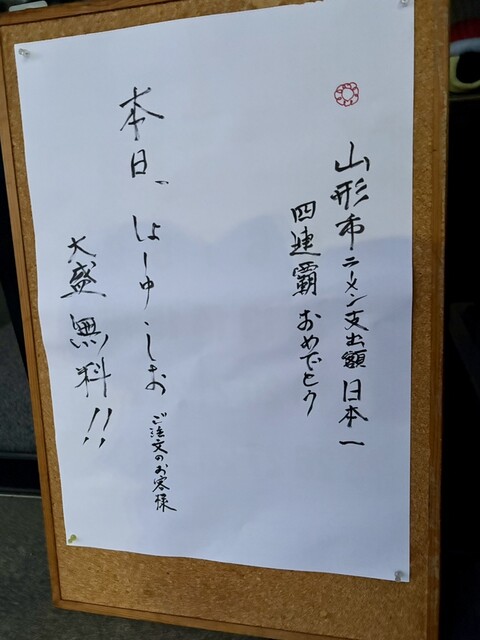 山形市ラーメン支出額日本一
四連覇おめでとう
本日、しょーゆ・しお ご注文のお客様
大盛無料!!